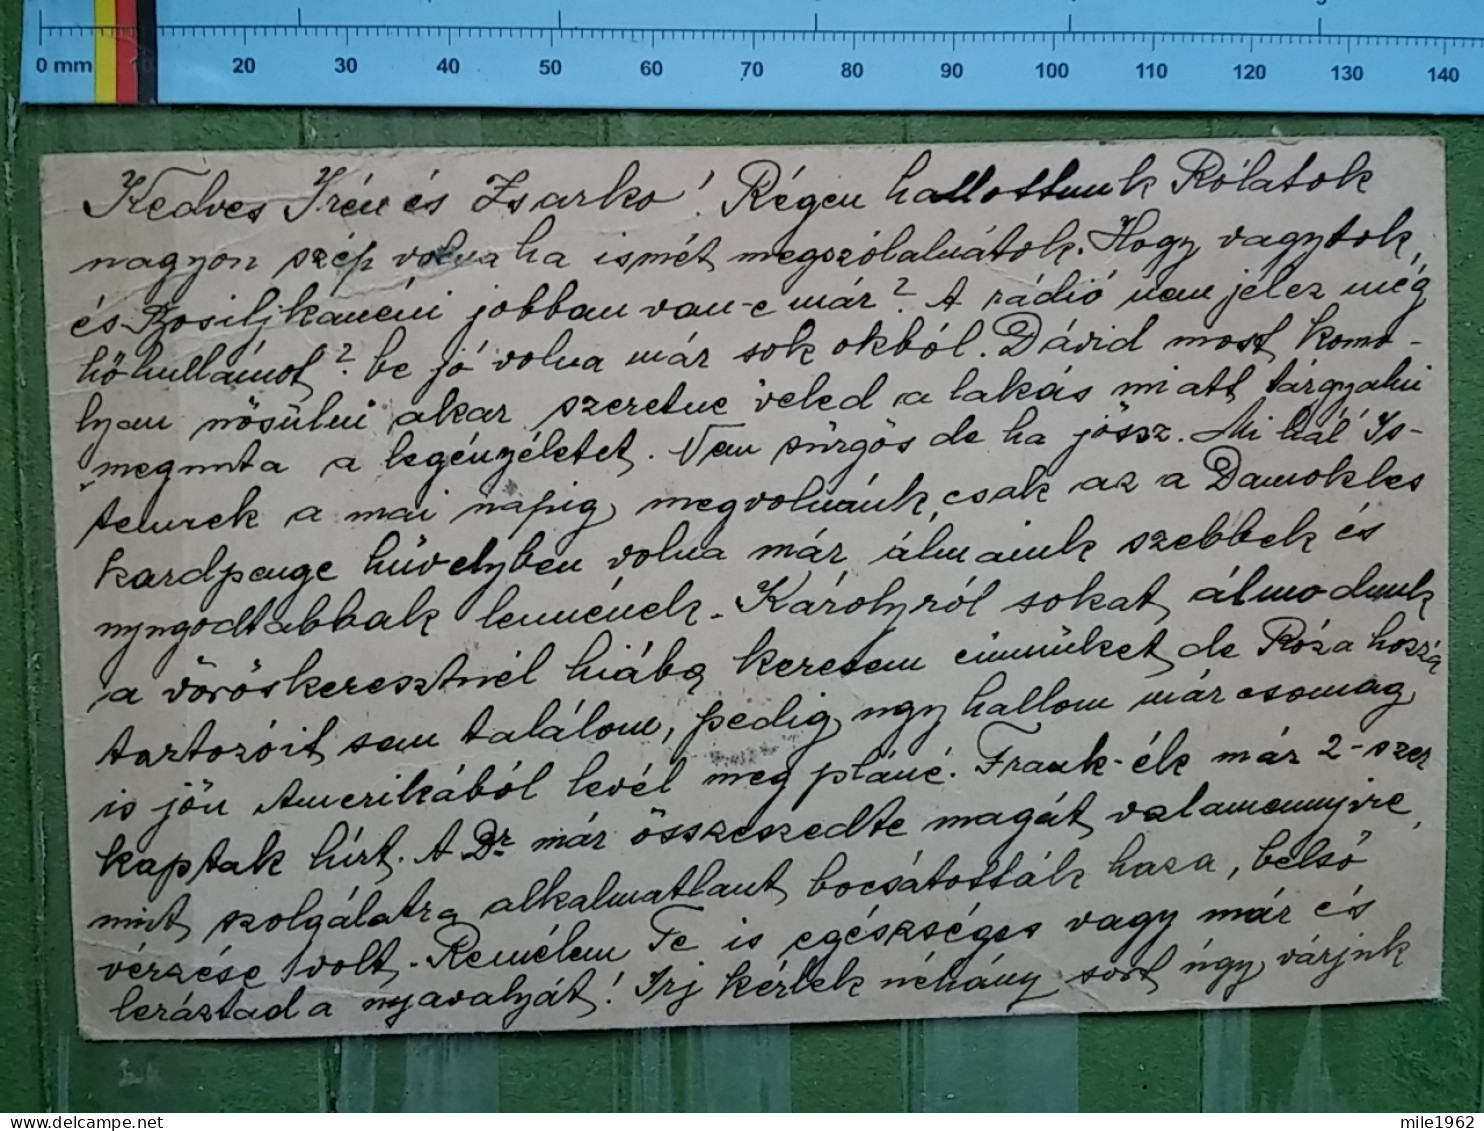 0 mm 10 20 30 40 50 60 70 80 90 100 110 120 130 140
Kedves Irén és Zsarko! Régen hallottunk Rólatok
nagyon szép volna ha ismét megszólalnátok. Hogy vagytok,
és Bosiljkanéni jobban van-e már? A rádió nem jelez még
hőhullámot? be jó volna már sok okból. Dávid most komo-
lyan nősülni akar szeretne veled a lakás miatt tárgyalni
megunta a legényéletet. Nem sürgős de ha jössz. Mi hál' Is-
tennek a mai napig megvolnánk, csak az a Damokles
kardpenge hüvelyben volna már álmaink szebbek és
nyugodtabbak lennének. Károlyról sokat álmodunk
a vöröskeresztnél hiába keresem címüket de Róza hozzá
tartozóit sem találom, pedig úgy hallom már csomag
is jön Amerikából levél meg pláné. Frank-ék már 2-szer
kaptak hírt. A Dr már összeszedte magát valamennyire,
mint szolgálatra alkalmatlant bocsátották haza, belső
vérzése volt. Remélem Te is egészséges vagy már és
leráztad a nyavalyát! Irj kérlek néhány sort úgy várjuk
mile1962